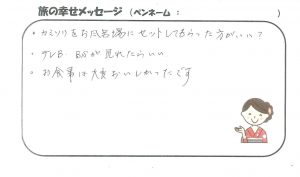 旅の幸せメッセージ（ペンネーム：　　　　）
・カミソリをお風呂場にセットしてもらった方がいい？
・テレビ BSが見れたらいい
・お食事は大変おいしかったです